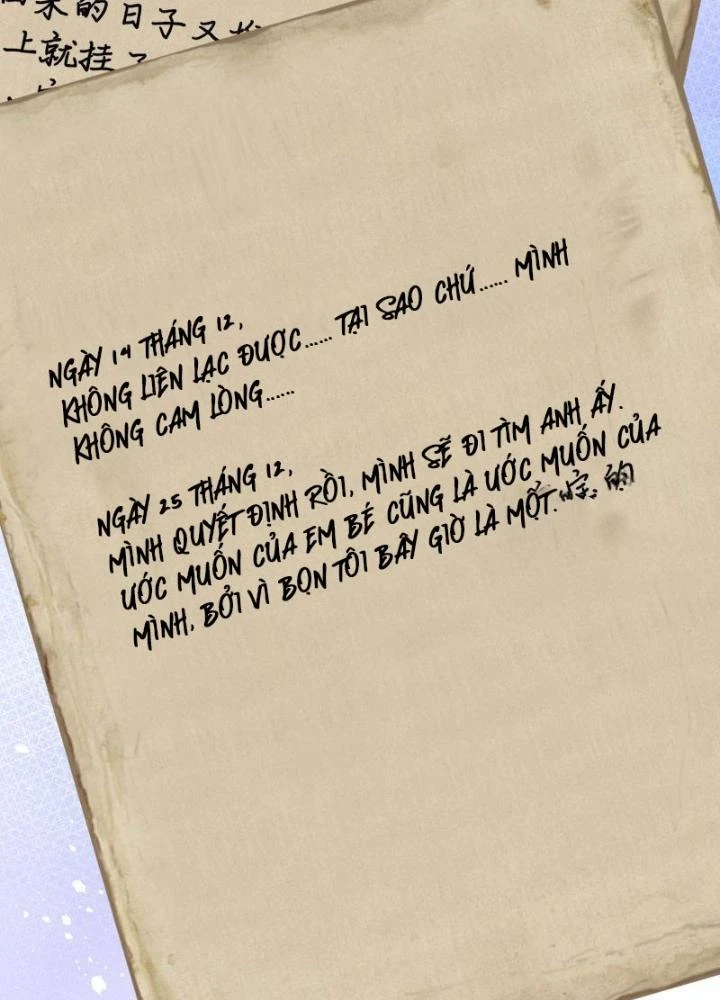 的日子又
上就挂了
NGÀY 14 THÁNG 12,
KHÔNG LIÊN LẠC ĐƯỢC...... TẠI SAO CHỨ...... MÌNH
KHÔNG CAM LÒNG......
NGÀY 25 THÁNG 12,
MÌNH QUYẾT ĐỊNH RỒI, MÌNH SẼ ĐI TÌM ANH ẤY.
ƯỚC MUỐN CỦA EM BÉ CŨNG LÀ ƯỚC MUỐN CỦA
MÌNH, BỞI VÌ BỌN TÔI BÂY GIỜ LÀ MỘT. 的